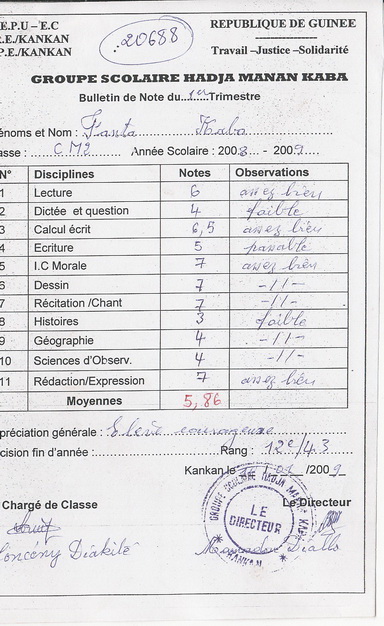 E.P.U – E.C
R.E./KANKAN
P.E./KANKAN
20688
REPUBLIQUE DE GUINEE
Travail –Justice –Solidarité
GROUPE SCOLAIRE HADJA MANAN KABA
Bulletin de Note du 1er Trimestre
énoms et Nom : Fanta Kaba
asse : CM2 Année Scolaire : 2008 - 2009
N° Disciplines Notes Observations
1 Lecture 6 assez bien
2 Dictée et question 4 faible
3 Calcul écrit 6,5 assez bien
4 Ecriture 5 passable
5 I.C Morale 7 assez bien
6 Dessin 7 -//-
7 Récitation /Chant 7 -//-
8 Histoires 3 faible
9 Géographie 4 -//-
10 Sciences d'Observ. 4 -//-
11 Rédaction/Expression 7 assez bien
Moyennes 5,86
préciation générale : Elève courageuse
cision fin d'année : Rang : 12e/43
Kankan le /2009
Chargé de Classe Le Directeur
GROUPE SCOLAIRE HADJA MANAN KABA
LE
DIRECTEUR
* KANKAN *
Diakité Mamadou Diallo